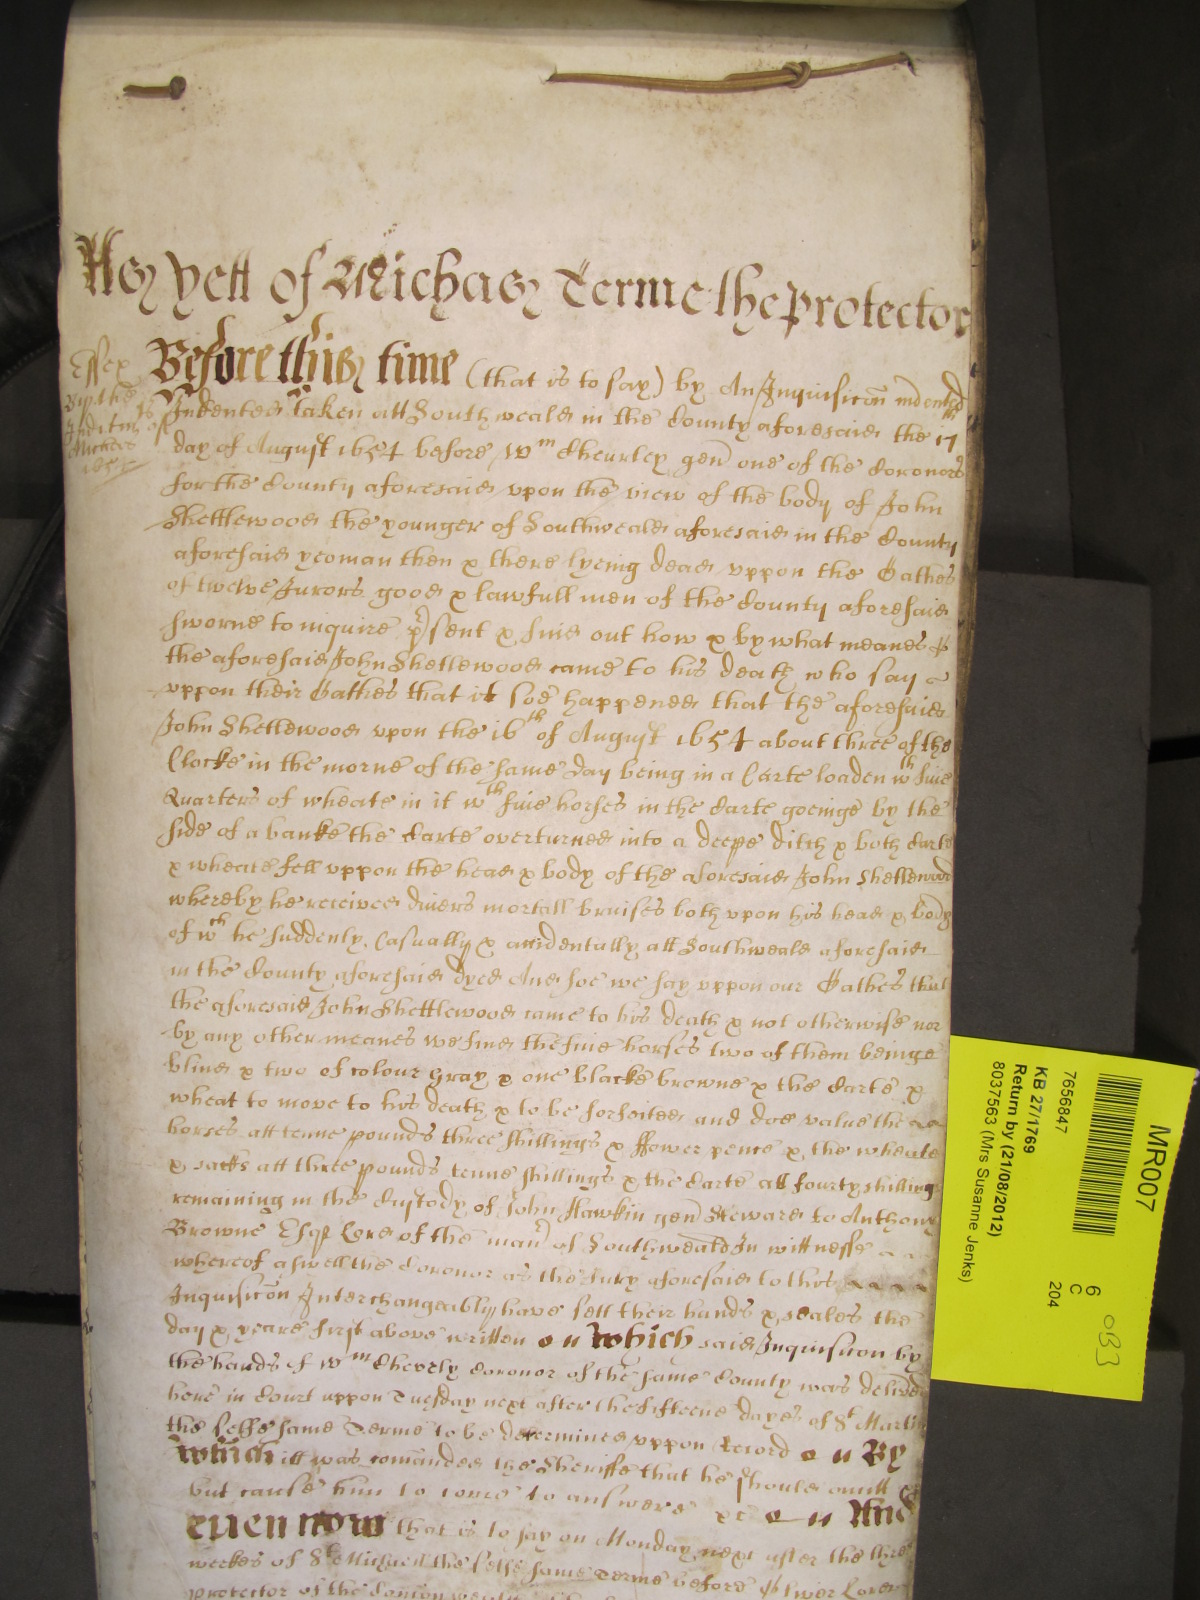 As yett of Michas Terme the Protector
Essex
By the
Inditmts of
Michas
1654
Before this time (that is to say) by An Inquisicōn indented
Indented taken att Southweald in the County aforesaid the 17th
day of August 1654 before Wm Cheurley gen one of the Coronors
for the County aforesaid upon the view of the body of John
Shettlewood the younger of Southweald aforesaid in the County
aforesaid yeoman then & there lyeing dead uppon the Oathes
of twelve Jurors good & lawfull men of the County aforesaid
sworne to inquire p̄sent & find out how & by what meanes
the aforesaid John Shettlewood came to his death who say
uppon their Oathes that it soe happened that the aforesaid
John Shettlewood upon the 16th of August 1654 about three of the
Clocke in the morne of the same day being in a Carte loaden wth five
Quarters of wheate in it wth five horses in the Carte goeinge by the
side of a banke the Carte overturned into a deepe ditch & both Carte
& wheate fell uppon the head & body of the aforesaid John Shettlewood
whereby he received divers mortall bruises both upon his head & body
of wch he suddenly, Casually & accidentally att Southweald aforesaid
in the County aforesaid dyed And soe we say uppon our Oathes that
the aforesaid John Shettlewood came to his death & not otherwise nor
by any other meanes we find the five horses two of them beinge
blind & two of colour gray & one blacke browne & the Carte &
wheat to move to his death & to be forfeited and doe value the
horses att tenne pounds three shillings & ffower pence & the wheate
& sacks att three pounds tenne shillings & the Carte att fourty shillings
remaining in the Custody of John Hawkin gen Steward to Anthony
Browne Esqr Lord of the mann of Southweald In wittnesse
whereof aswell the Coronor as the Jury aforesaid to this
Inquisicōn Interchangeably have sett their hands & seales the
day & yeare first above written which said Inquisition by
the hands of Wm Cheverly Coronor of the same County was delivered
here in Court uppon Tuesday next after the fifteene dayes of St Martin
the selfe same Terme to be determined uppon Record By
which itt was comanded the Sheriffe that he should omitt
but cause him to come to answere &c And
even now that is to say on Monday next after the three
weekes of St Michaell the selfe same Terme before Oliver Lord
protector of the
MR007
7656847
KB 27/1769
Return by (21/08/2012)
8037563 (Mrs Susanne Jenks)
6
C
204
033